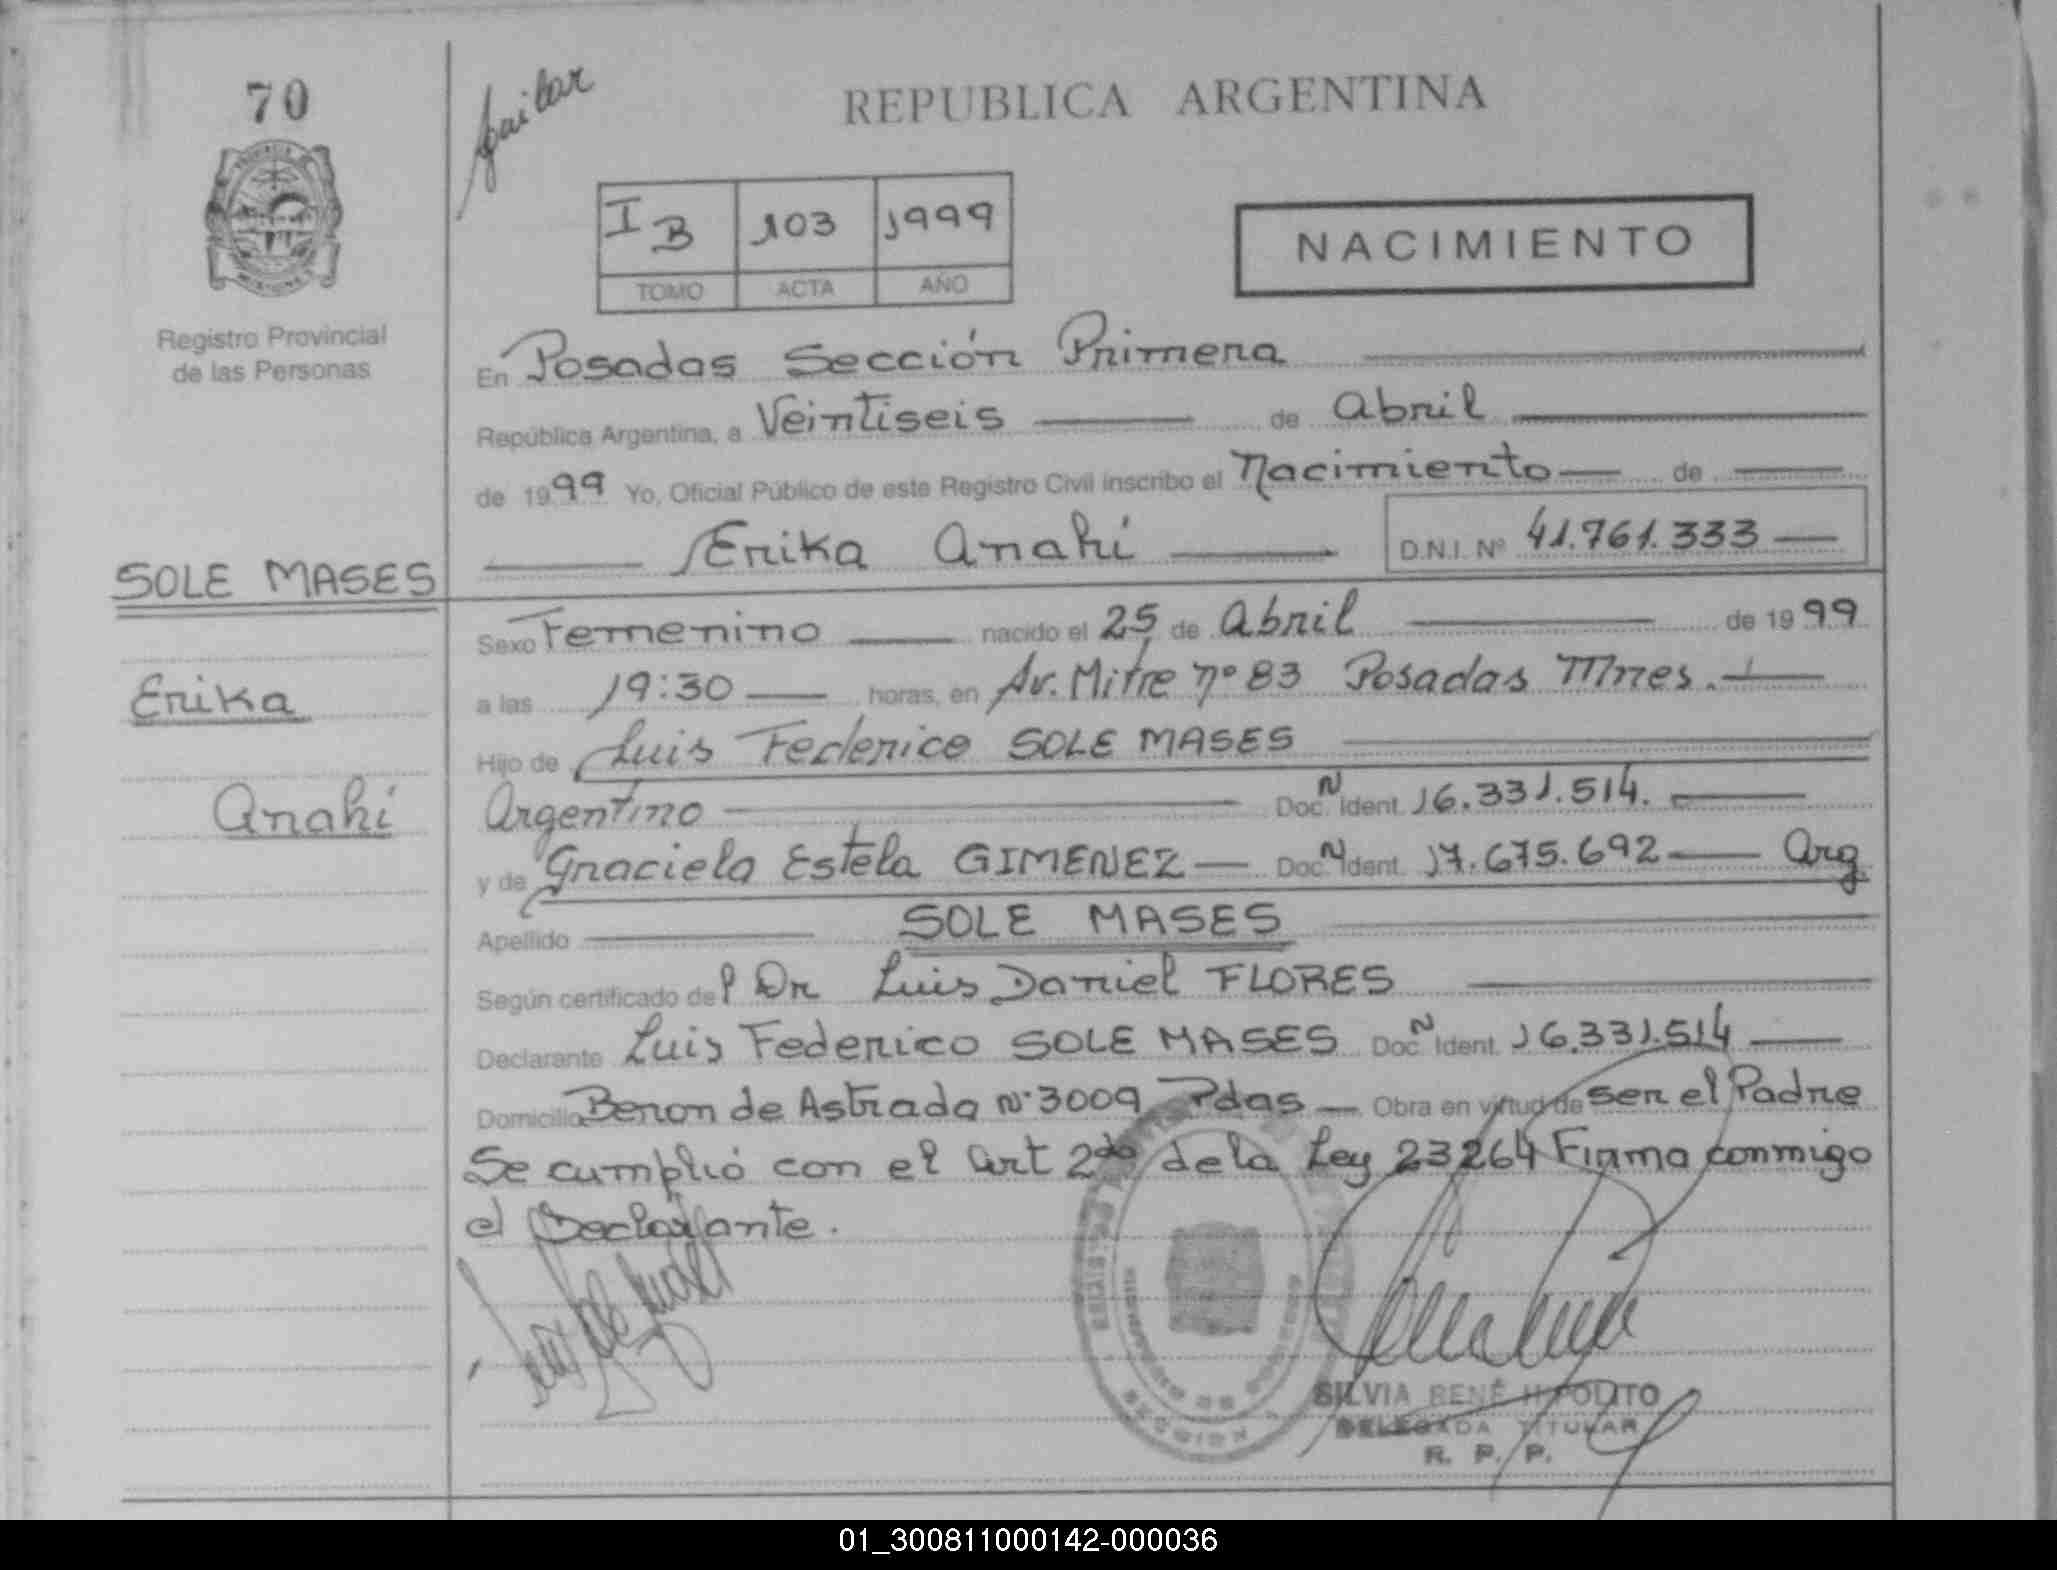 70
Registro Provincial
de las Personas
SOLE MASES
Erika
Anahí
REPUBLICA ARGENTINA
I B 103 1999
TOMO ACTA AÑO
NACIMIENTO
En Posadas Sección Primera
República Argentina, a Veintiseis de Abril
de 1999 Yo, Oficial Público de este Registro Civil inscribo el Nacimiento de
Erika Anahí D.N.I. Nº 41.761.333
Sexo Femenino nacido el 25 de Abril de 1999
a las 19:30 horas, en Av. Mitre nº 83 Posadas Mnes.
Hijo de Luis Federico SOLE MASES
Argentino Doc. N Ident. 16.331.514.
y de Graciela Estela GIMENEZ Doc. N Ident. 17.675.692 Arg
Apellido SOLE MASES
Según certificado del Dr Luis Daniel FLORES
Declarante Luis Federico SOLE MASES Doc. N Ident. 16.331.514
Domicilio Beron de Astrada Nº 3009 Pdas Obra en virtud de ser el Padre
Se cumplió con el Art 2do de la Ley 23264 Firma conmigo
el Declarante.
SILVIA RENÉ HIPOLITO
DELEGADA TITULAR
R. P. P.
01_300811000142-000036